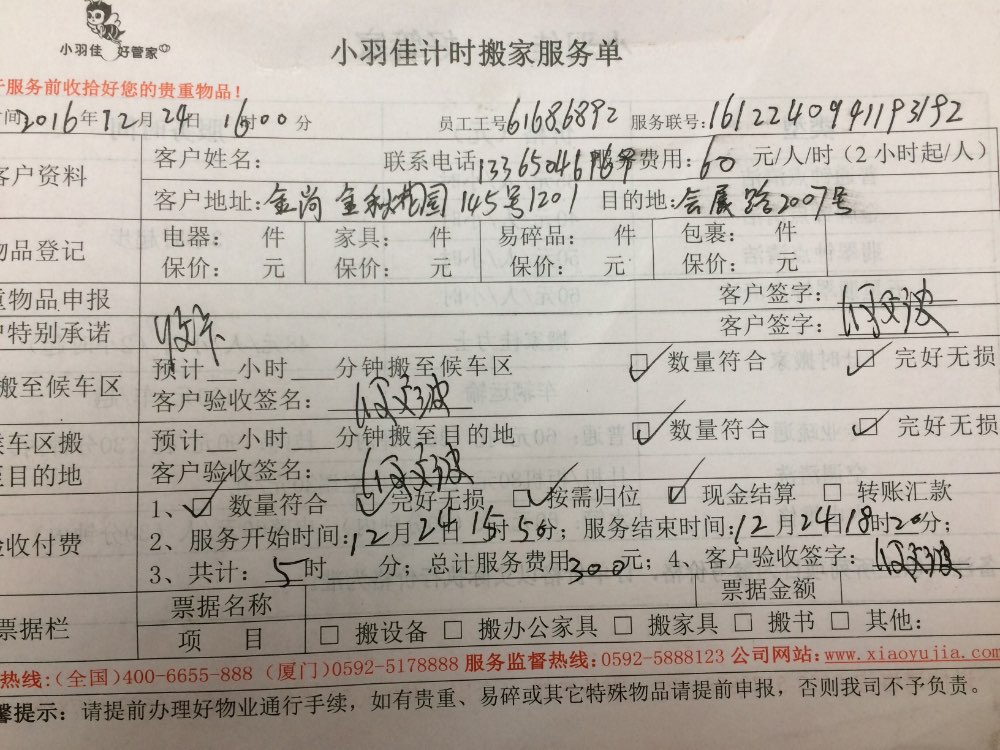 小羽佳 好管家
小羽佳计时搬家服务单
服务前收拾好您的贵重物品！
时间 2016年12月24日 16时00分 员工工号 61686892 服务联号：1612240941193192
客户资料 客户姓名： 联系电话 服务费用：60 元/人/时（2小时起/人）
客户地址：金尚 金秋花园 145号1201 目的地：会展路2007号
物品登记 电器： 件 家具： 件 易碎品： 件 包裹： 件
保价： 元 保价： 元 保价： 元 保价： 元
重物品申报 客户签字：
户特别承诺 客户签字：
搬至候车区 预计__小时___分钟搬至候车区 ☑ 数量符合 ☑ 完好无损
客户验收签名：
候车区搬 预计__小时___分钟搬至目的地 ☑ 数量符合 ☑ 完好无损
至目的地 客户验收签名：
验收付费 1、☑ 数量符合 ☑ 完好无损 ☑ 按需归位 ☑ 现金结算 □ 转账汇款
2、服务开始时间：12月24日15时50分；服务结束时间：12月24日18时20分；
3、共计：5时 分；总计服务费用300元；4、客户验收签字：
票据栏 票据名称 票据金额
项 目 □ 搬设备 □ 搬办公家具 □ 搬家具 □ 搬书 □ 其他：
热线：（全国）400-6655-888（厦门）0592-5178888 服务监督热线：0592-5888123 公司网站：www.xiaoyujia.com
馨提示：请提前办理好物业通行手续，如有贵重、易碎或其它特殊物品请提前申报，否则我司不予负责。